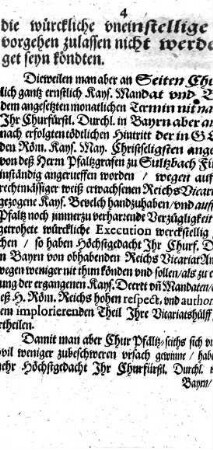 4
die würckliche vneinstellige
vorgehen zulassen nicht werde
get seyn köndten.
Dieweilen man aber an Seiten Chu
lich gantz ernstlich Kays. Mandat vnd
dem angesetzten monatlichen Termin nit na
Ihr Churfürstl. Durchl. in Bayrn aber an
nach erfolgten tödtlichen Hintritt der in G
den Röm. Kays. May. Christseligsten ange
von deß Herrn Pfaltzgrafen zu Sultzbach Fü
inständig angeruffen worden / wegen auff
rechtmässiger weiß erwachsenen Reichs Vicari
gezogene Kays. Bevelch handzuhaben / vnd auff
Pfaltz noch immerzu verharrende Verzügligkeit
getrohete würckliche Execution werckstellig
chen / so haben Höchstgedacht Ihr Churf. D
in Bayrn von obhabenden Reichs Vicariat An
wegen weniger nit thun können vnd sollen / als zu e
ung der ergangenen Kays. Decret vñ Mandaten /
deß H. Röm. Reichs hohen respect, vnd author
em implorierenden Theil Ihre Vicariatshülff
rtheilen.
Damit man aber Chur Pfaltz-seiths sich v
vil weniger zubeschweren vrsach gewinne / habe
ehr Höchstgedacht Ihr Churfürstl. Durchl.
Bayrn /